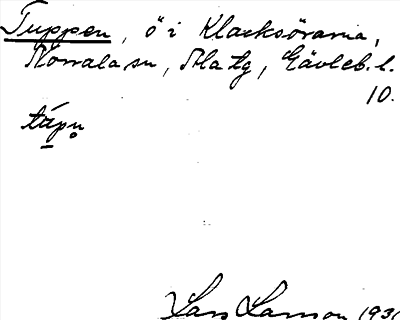 Tuppen, ö i Klacksörarna,
Norrala sn, Ala tg, Gävleb. l.
10.
túpn̥
Lars Larsson 193